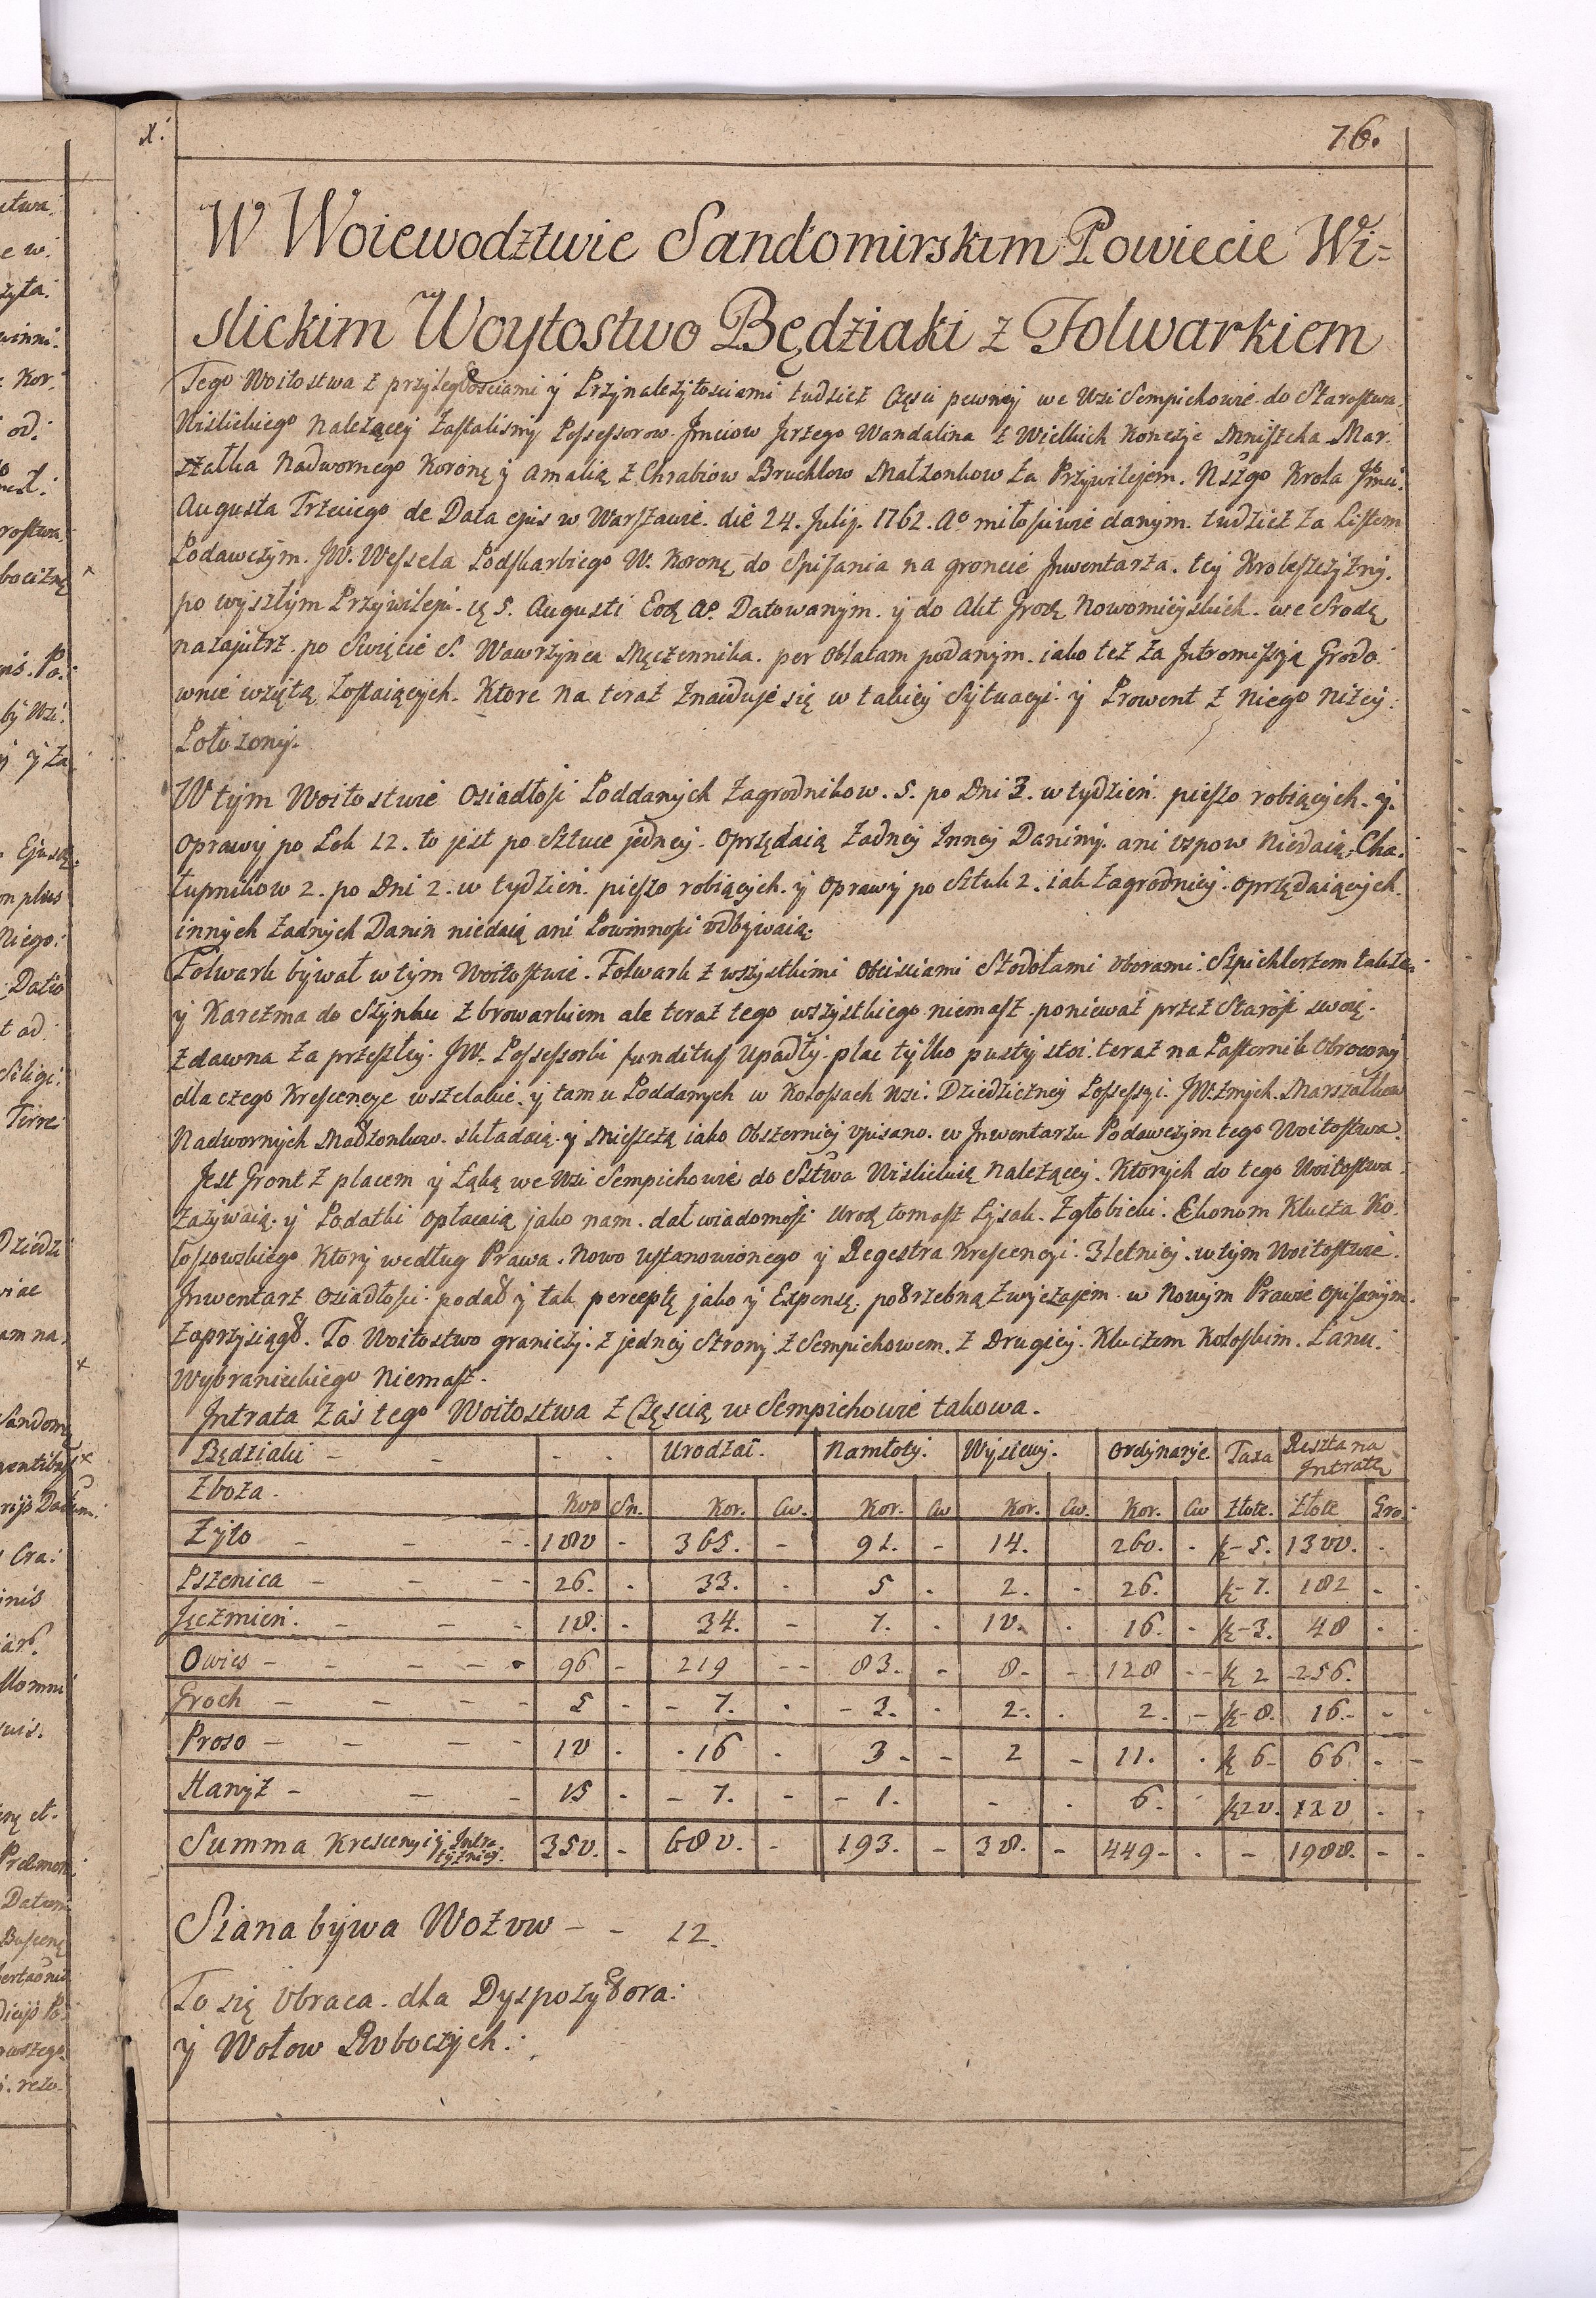 76.
W Woiewodztwie Sandomirskim Powiecie Wi=
slickim Woytostwo Będziaki z Folwarkiem
Tego Woitostwa z przyległosciami y Przynalezytosciami tudziez Częsci pewney we Wsi Sempichowie do Starostwa
Wislickiego Nalezącey zastalismy Possessorow Jmciow Jerzego Wandalina z Wielkich Konczyc Mniszcha Mar:
szałka Nadwornego Koronę y Amalią z Chrabiow Bruchlow Małzonkow za Przywilejem. Nszgo Krola Jmci.
Augusta Trzeciego de Data ejus w Warszawie. die 24. Julij. 1762. Ao. miłosciwie danym. tudziez za Listem
Podawczym. JW. Wessela Podskarbiego W. Koronę do Spisania na groncie Inwentarza. tey Kroleszczyzny.
po wyszłym Przywileju. 5. Augusti Eodę Ao. Datowanym. y do Akt Grodę Nowomieyskich. we Srodę
nazajutrz. po Swięcie S. Wawrzynca Męczennika. per Oblatam podanym. iako tez za Intromissyą Grodo
wnie wziętą Zostaiących. Ktore na teraz Znaiduje się w takiey Sytuacyi. y Prowent z Niego Nizey:
Połozony.
W tym Woitostwie Osiadłosci Poddanych Zagrodnikow. 5. po Dni 3. w tydzien. pieszo robiących. y.
Oprawy po Łok 12. to jest po Sztuce jedney. Oprzędaią Zadney Inney Daniny. ani Czpow Niedaią. Cha:
łupnikow 2. po Dni 2. w tydzien. pieszo robiących. y Oprawy po Sztuk 2. iak Zagrodnicy. Oprzędaiących.
innych Zadnych Danin niedaią ani Powinnosci odbywaią.
Folwark bywał w tym Woitostwie. Folwark z wszystkimi Obeisciami Stodołami Oborami. Szpichlerzem takze
y Karczma do Szynku z browarkiem ale teraz tego wszystkiego niemasz. poniewaz przez Starosc swoię.
Zdawna za przeszłey. JW. Possessorki funditus Upadły. plac tylko pusty stoi. teraz na Pasternik Obrocony
dla czego Krescencye wszelakie. y tam u Poddanych w Kolossach Wsi. Dziedziczney Possessyi. JW. Zmych. Marszałkow
Nadwornych Małzonkow. składaią. y Mieszczą iako Obszerniey Opisano. w Inwentarzu Podawczym tego Woitostwa.
Jest Gront z placem y Łąką we Wsi Sempichowie do Sttwa Wislickię Nalezącey. Ktorych do tego Woitostwa
Zazywaią. y Podatki Opłacaią jako nam. dał wiadomosc Urodę Tomasz Łysak. Zgłobicki. Ekonom Klucza Ko:
lossowskiego Ktory według Prawa. Nowo Ustanowionego y Regestra Krescencyi. 3letniey. w tym Woitostwie.
Inwentarz Osiadłosci. podał y tak perceptę jako y Expensę. potrzebną Zwyczajem w Nowym Prawie Opisanym.
Zaprzysiągł. To Woitostwo graniczy. z jedney Strony z Sempichowem. z Drugiey. Kluczem Koloskim. Łanu.
Wybranieckiego Niemasz.
Intrata zas tego Woitostwa z Częscią w Sempichowie takowa.
Będziaki - - - . Urodzai. Namłoty. Wysiewy. Ordynarye. Taxa Reszta na Intratę
Zboza. Kop Sn. Kor. Cw. Kor. Cw Kor. Cw. Kor. Cw Złote. Złote Gro:
Zyto - - - 180 - 365. - 91. - 14. 260. . kę-5. 1300. .
Pszenica - - - 26. . 33. . 5 . 2. . 26. kę-7. 182 .
Jęczmien. - - - 18. . 34. - 7. . 10. . 16. . kę-3. 48 .
Owies - - - - 96 - 219 - - 83. . 8. - 128 - - kę 2 256.
Groch - - - - 5 - - 7. . - 3. . 2. . 2. - kę-8. 16. -
Proso - - - - 10 . . 16 . 3. - 2 - 11. . kę 6 66 . -
Hanyz - - - 15 - - 7. - - 1. - . 6. kę20. 120 .
Summa Krescencyi y Intra tyzniej. 350. - 680. - 193. - 38. - 449 - . - 1988. -
Siana bywa Wozow - - 12.
To się Obraca. dla Dyspozytora:
y Wołow Roboczych.: